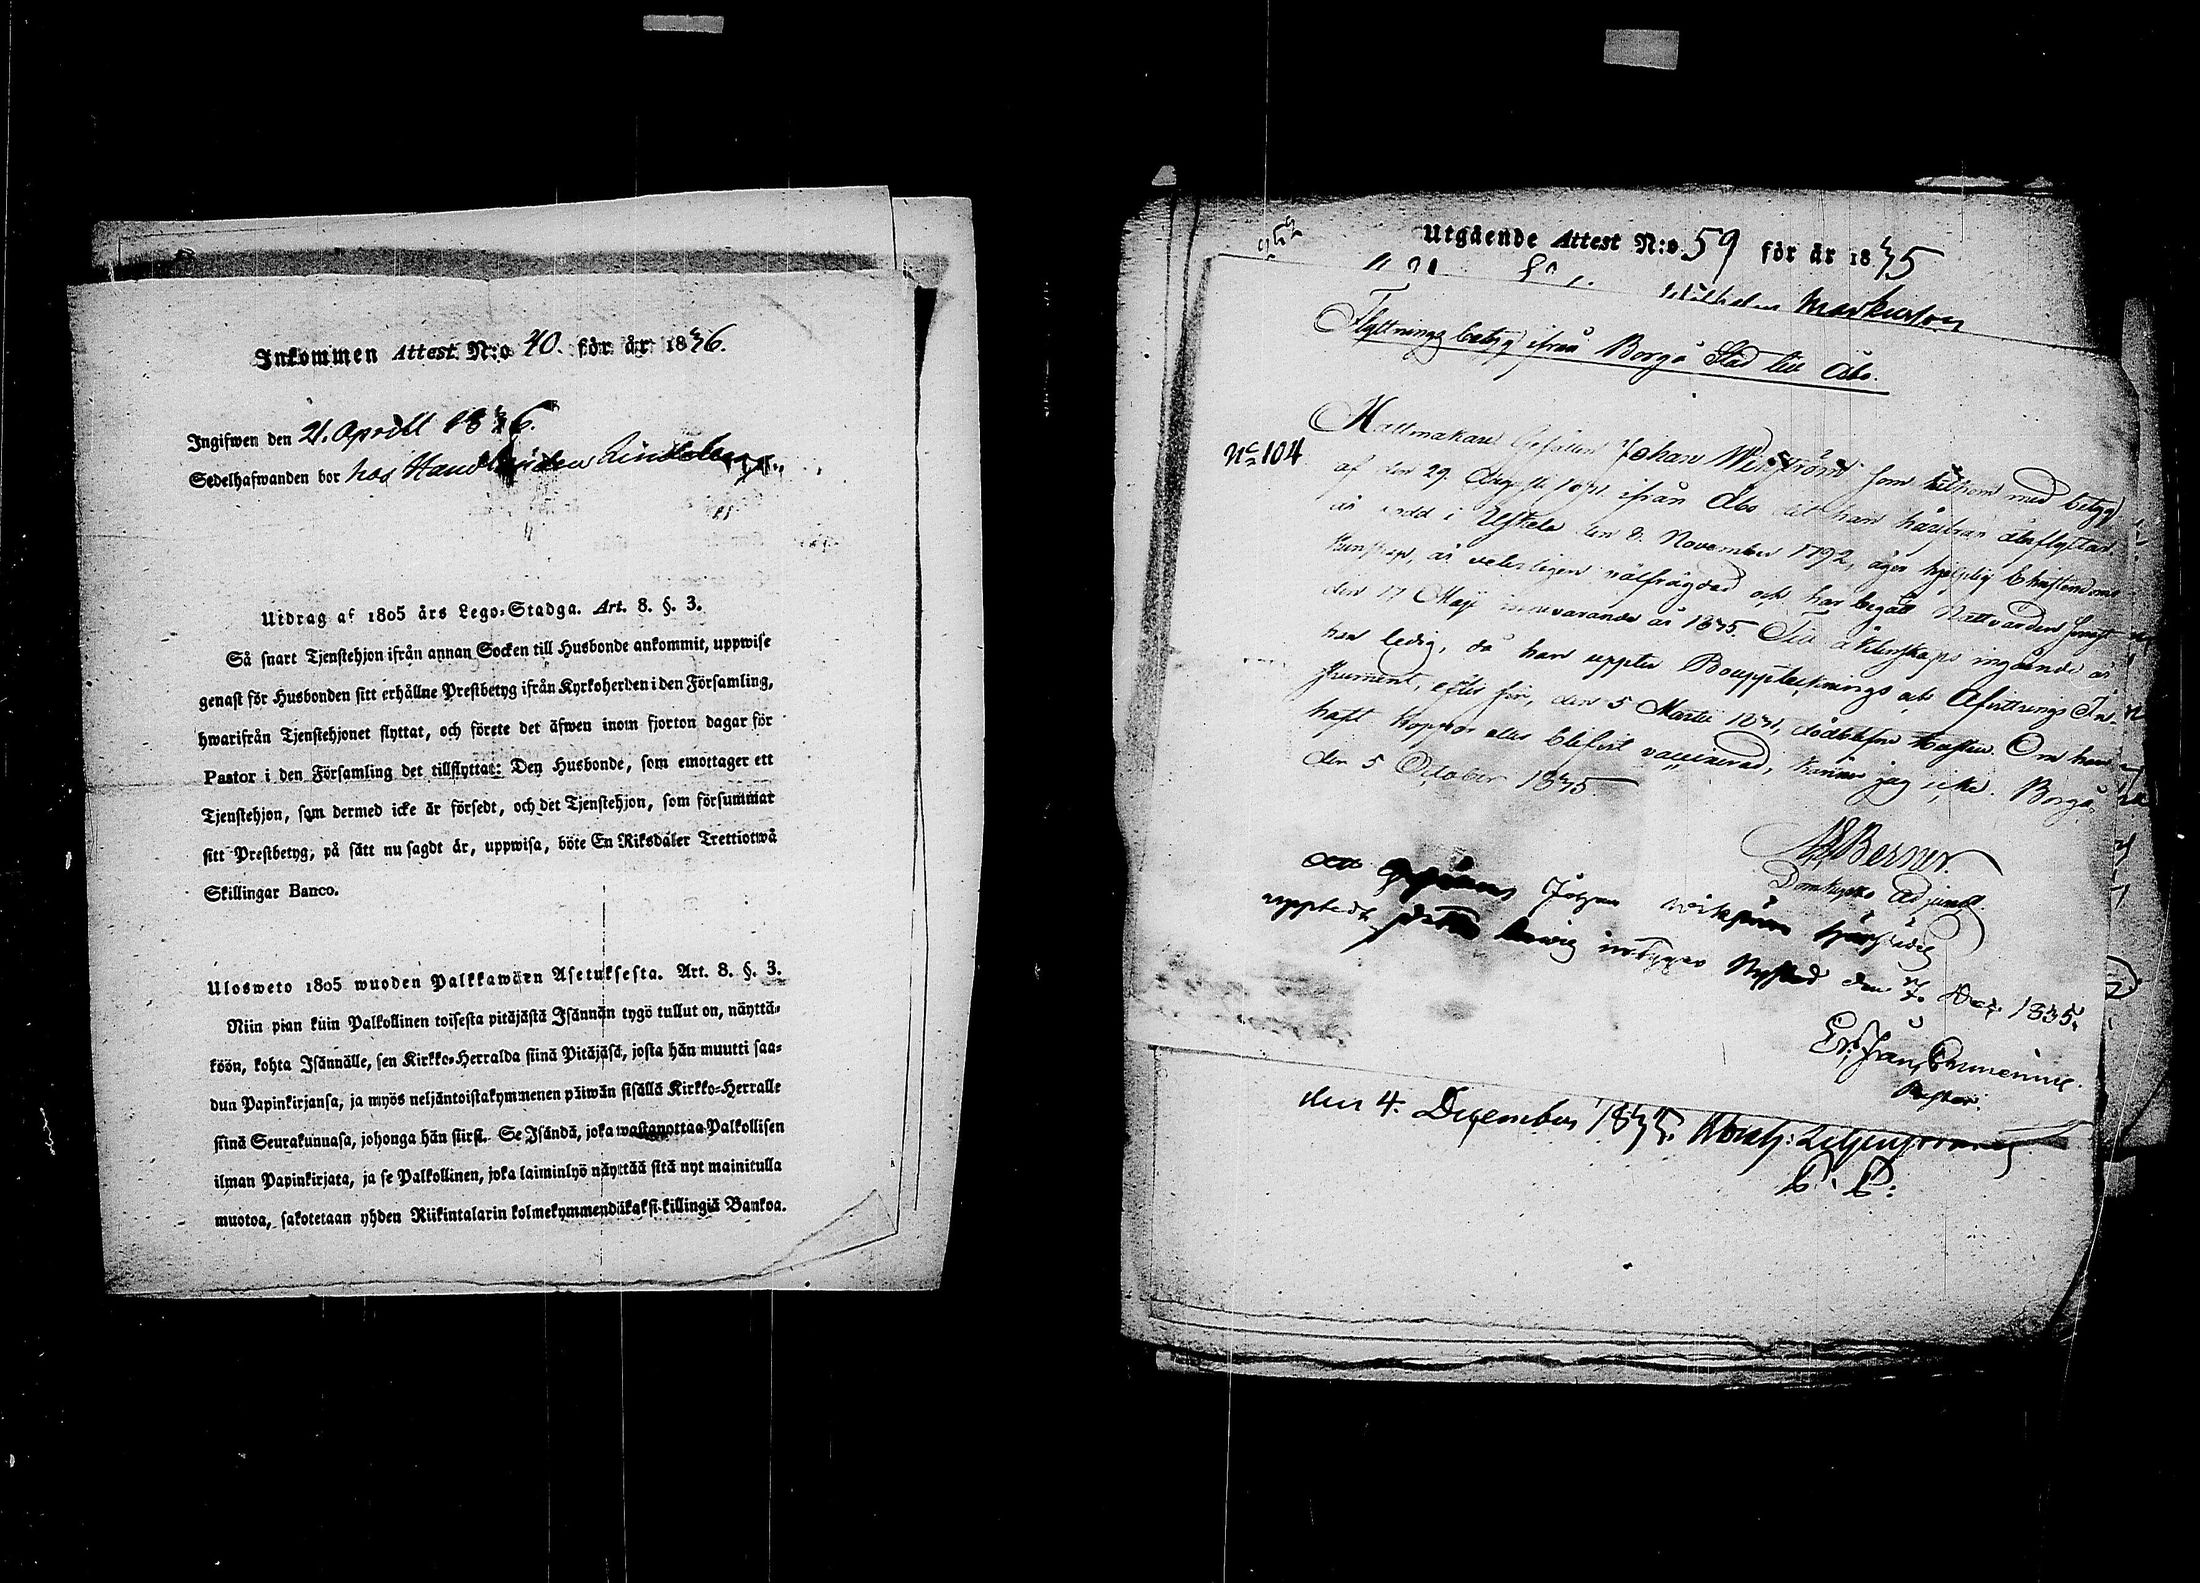 Inkommen Attest N:o 40. för år 1836.
Ingifwen den 21. April 1836.
Sedelhafwanden bor hos Handlanden Lindeberg.
Utdrag af 1805 års Lego-Stadga. Art. 8. §. 3.
Så snart Tjenstehjon ifrån annan Socken till Husbonde ankommit, uppwise
genast för Husbonden sitt erhållne Prestbetyg ifrån Kyrkoherden i den Församling,
hwarifrån Tjenstehjonet flyttat, och förete det äfwen inom fjorton dagar för
Pastor i den Församling det tillflyttat: Den Husbonde, som emottager ett
Tjenstehjon, som dermed icke är försedt, och det Tjenstehjon, som försummar
sitt Prestbetyg, på sätt nu sagdt är, uppwisa, böte En Riksdaler Trettiotwå
Skillingar Banco.
Ulosweto 1805 wuoden Palkkawäen Asetuksesta. Art. 8. §. 3.
Niin pian kuin Palkollinen toisesta pitäjästä Isännän tygö tullut on, näyttä-
köön, kohta Isännälle, sen Kirkko-Herralda siinä Pitäjäsä, josta hän muutti saa-
dun Papinkirjansa, ja myös neljäntoistakymmenen päiwän sisällä Kirkko-Herralle
siinä Seurakunnasa, johonga hän siirsi. Se Isändä, joka wastanottaa Palkollisen
ilman Papinkirjata, ja se Palkollinen, joka laiminlyö näyttää sitä nyt mainitulla
muotoa, sakotetaan yhden Riikintalarin kolmekymmendäkaksi killingiä Bankoa.
Utgående Attest N:o 59 för år 1835
Markusson
Flyttnings betyg ifrån Borgå Stad till Åbo.
No 104
Hattmakare Gesällen Johan Wikström som hitkom med betyg
af den 29. Augusti 1831 ifrån Åbo dit han härifrån återflyttar
är född i Uskela den 8. November 1792, äger hjelplig Christendoms
kunskap, är veterligen välfrägdad och har begått Nattvarden senast
den 17 Maji innevarande år 1835. Till äktenskaps ingående är
han ledig, då han uppter Bouppteknings och Afvittrings In-
strument, efter sin, den 5 Martii 1831, dödblefne hustru. Om han
haft koppor eller blifvit vaccinerad, känner jag icke. Borgå
den 5 October 1835
Berner.
Domkyrko Adjunct.
Johan Wikström härstädes
uppted intygas Nystad den 7 Dec. 1835.
Pastor.
den 4. December 1835.